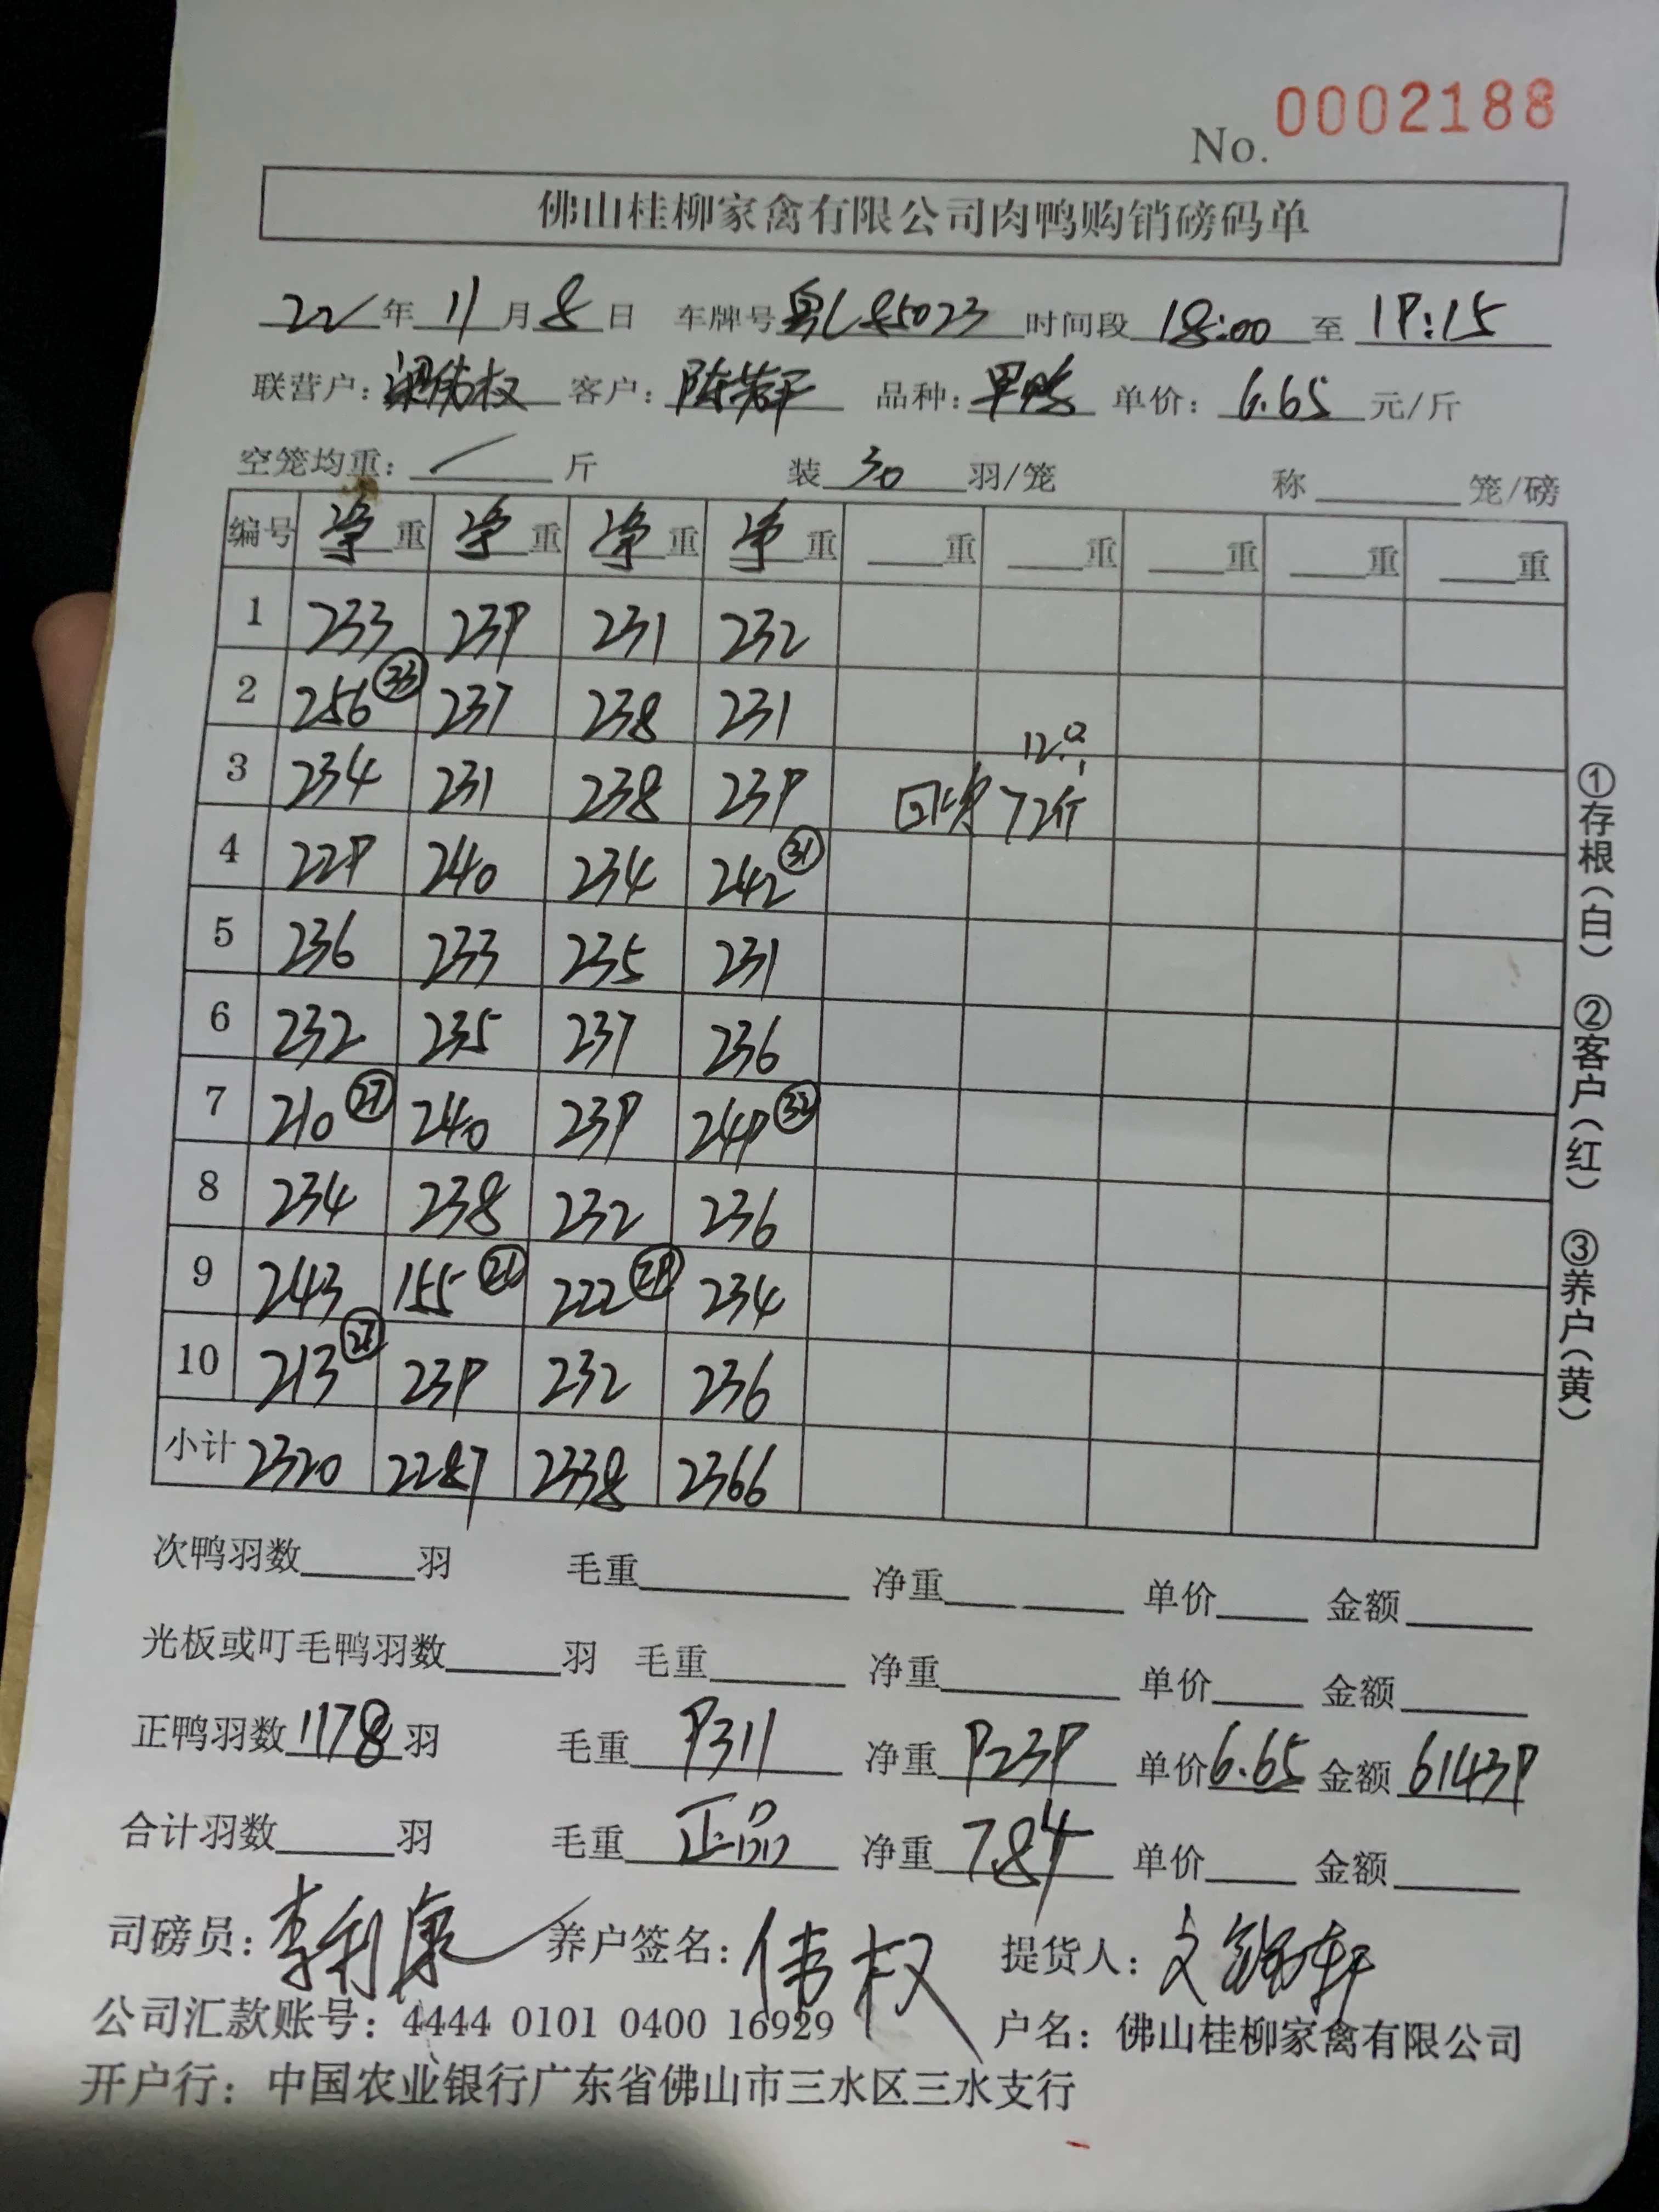 No. 0002188
佛山桂柳家禽有限公司肉鸭购销磅码单
22年11月8日 车牌号粤L85023 时间段18:00至19:15
联营户：梁伟权 客户：陈 品种： 单价：6.65元/斤
空笼均重：／斤 装30羽/笼 称 笼/磅
编号 净重 净重 净重 净重 重 重 重 重 重
1 233 239 231 232
2 256㉝ 237 238 231
12
3 234 231 238 239 回 72斤
4 229 240 234 242㉛
5 236 233 235 231
6 232 235 237 236
7 210㉗ 240 239 249㉜
8 234 238 232 236
9 243 155 222㉙ 234
10 213 239 232 236
小计 2320 2287 2338 2366
次鸭羽数 羽 毛重 净重 单价 金额
光板或叮毛鸭羽数 羽 毛重 净重 单价 金额
正鸭羽数1178羽 毛重9311 净重9239 单价6.65 金额61439
合计羽数 羽 毛重正品 净重7.84 单价 金额
司磅员：李利康 养户签名：伟权 提货人：文
公司汇款账号：4444 0101 0400 16929 户名：佛山桂柳家禽有限公司
开户行：中国农业银行广东省佛山市三水区三水支行
①存根（白） ②客户（红） ③养户（黄）